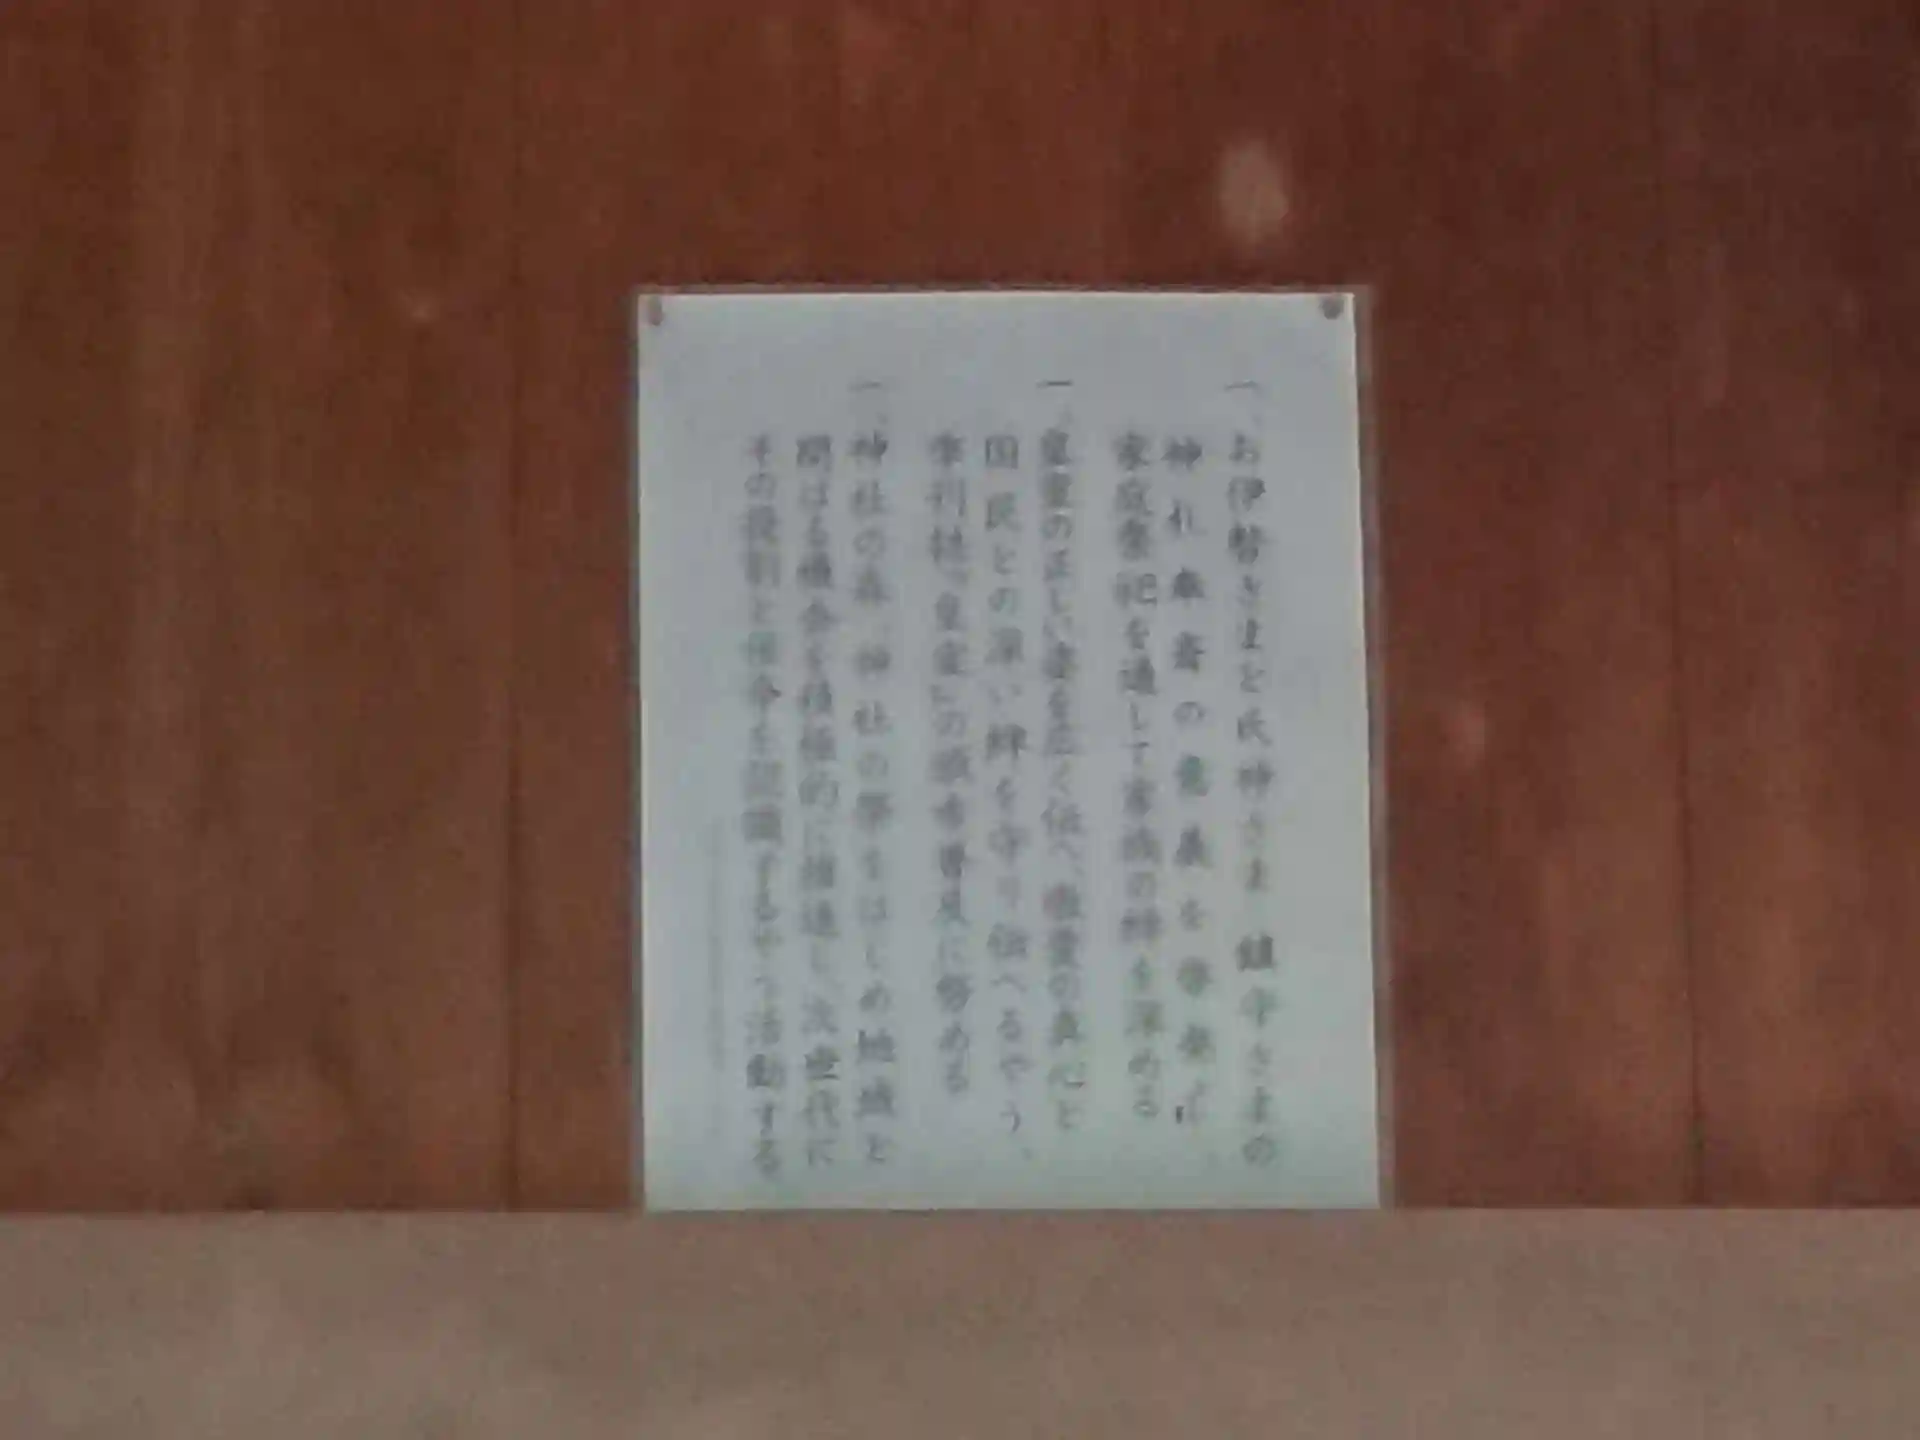 一、お伊勢さまと氏神さま 鎮守さまの
神札奉斎の意義を啓発し
家庭祭祀を通して家族の絆を深める
一、皇室の正しい姿を広く伝へ、皇室の真心と
国民との深い絆を守り伝へるやう、
季刊誌『皇室』の頒布普及に努める
一、神社の森、神社の祭をはじめ地域と
関はる機会を積極的に推進し、次世代に
その役割と使命を認識するやう活動する